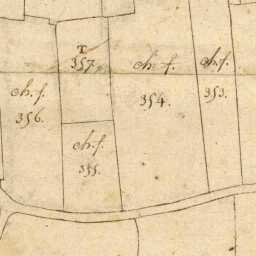 T
357.
ch. f.
354.
ch. f.
353.
ch. f.
356.
ch. f.
355.